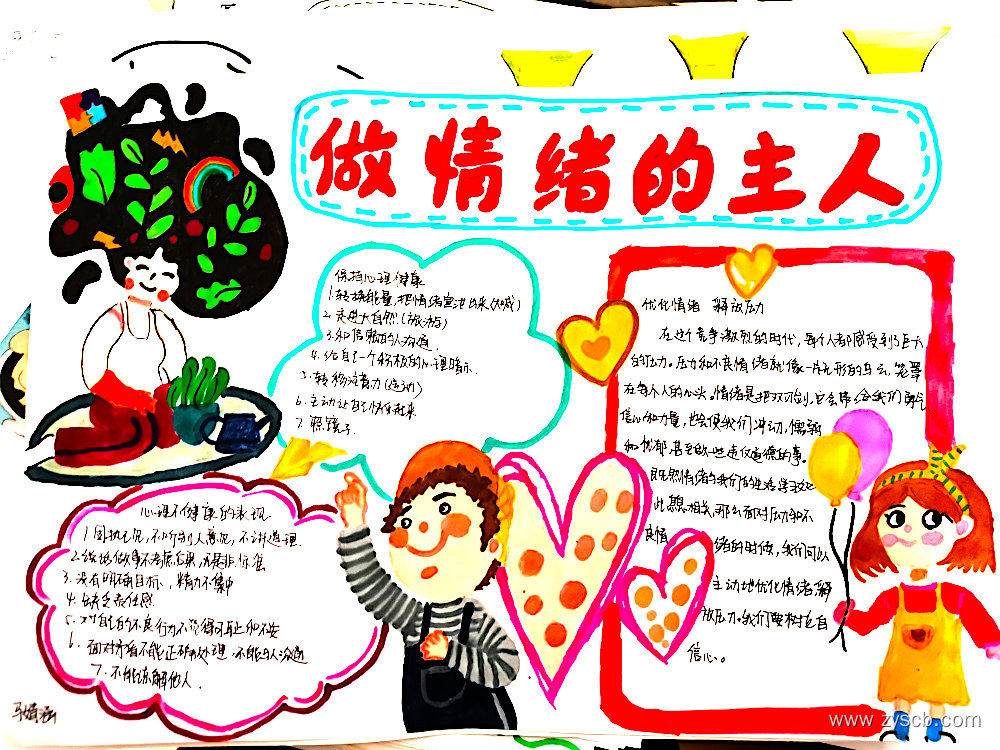 做情绪的主人
保持心理健康
1.转换能量,把情绪宣泄出来(从咸)
2.走进大自然.(旅游)
3.和信赖的人沟通.
4.给自己一个积极的心理暗示.
5.转移注意力(运动)
6.主动让自己快乐起来
7.照镜子.
优化情绪 释放压力
在这个竞争激烈的时代,每个人都感受到巨大
的压力。压力和不良情绪就像一片无形的乌云,笼罩
在每个人的心头。情绪是把双刃剑,它会带给我们勇气
信心和力量,也会使我们冲动,懦弱
和忧郁,甚至做一些违仅道德的事。
既然情绪与我们的生活学习
此息息相关,那么面对压力和不
良情绪的时候,我们可以
主动地优化情绪,释
放压力。我们要树立自
信心。
心理不健康的表现
1.固执己见,不听别人意见,不讲道理.
2.做事不考虑后果,是非标准
3.没有明确目标,精力不集中
4.缺乏责任感
5.对自己的不良行为不觉得可耻和不安
6.面对矛盾不能正确处理,不能与人沟通
7.不能谅解他人.
www.zyscb.com